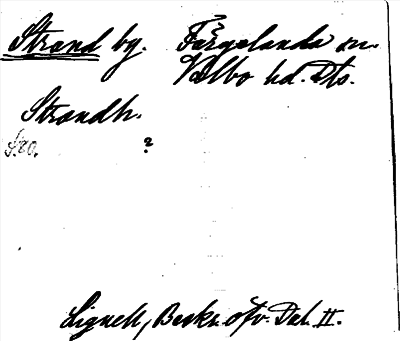 Strand by. Färgelanda sn.
Valbo hd. Dls.
Strandh.
?
Lignell, Beskr. öfv. Dal. II.